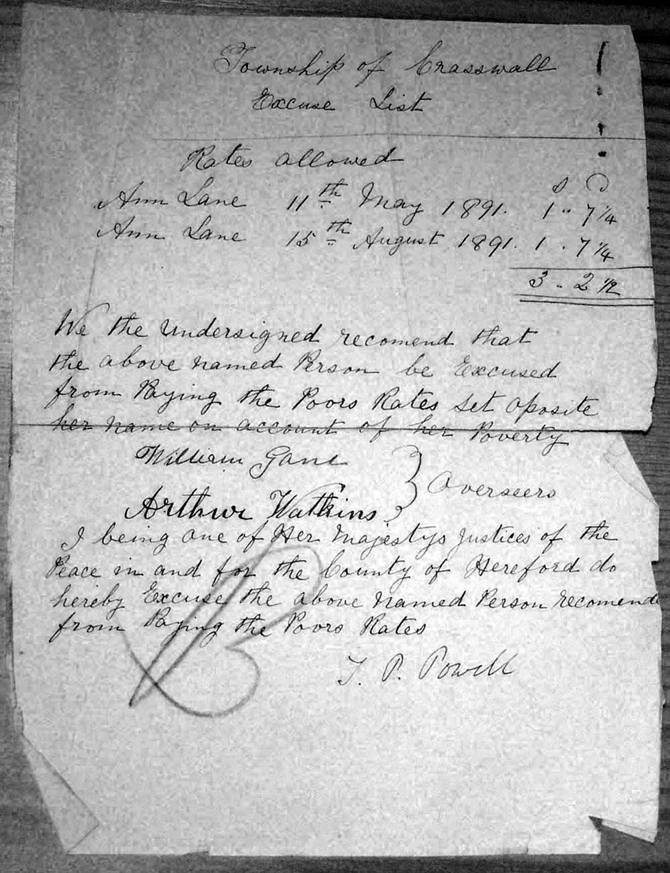 Township of Crasswall
Excuse List
Rates allowed
s D
Ann Lane 11th May 1891. 1 " 7 1/4
Ann Lane 15th August 1891. 1 . 7 1/4
3 - 2 1/2
We the undersigned recomend that
the above named Person be Excused
from Paying the Poors Rates set oposite
her name on account of her Poverty
William Gane
Arthur Watkins } Overseers
I being one of Her Majestys Justices of the
Peace in and for the County of Hereford do
hereby Excuse the above named Person recomend
from Paying the Poors Rates
T. P. Powell